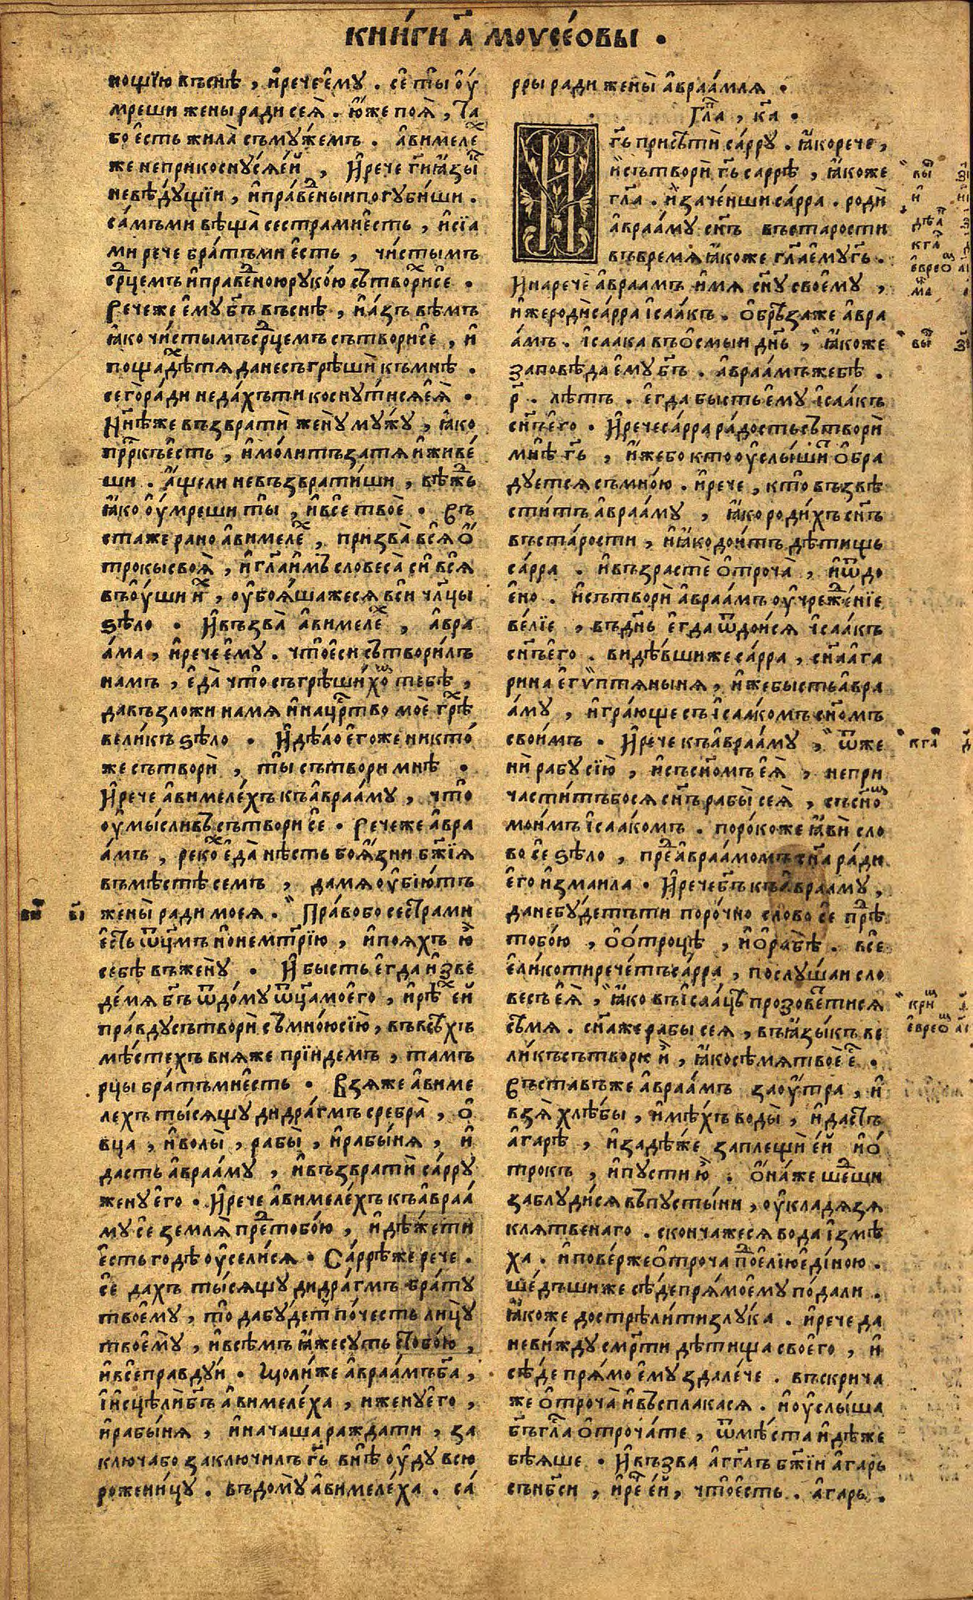 КНИ́ГИ А҃ МОѴСЕ́ОВЫ .
нощїю въснѣ , и҆рече҆мꙋ . се́ ты̀ ᲂу҆
мреши жены̀ ради сеѧ̀ . ю҆же поѧ̀ , та
бо є҆сть жила̀ съмꙋ́жемъ . а҆вимеле́х
же неприкоснꙋ́сѧе́й , И҆рече ги҃ ꙗ҆зы́къ
невѣ́дꙋщїи , и҆пра́веныи погꙋ́биши .
са́мъми вѣща̀ сестрамѝесть , и҆сїа̀
ми рече бра́тъми є҆сть , чи́стымъ
ср҃цемъ и҆пра́веною рꙋко́ю сътвори́хсе .
Рече́же є҆мꙋ̀ бг҃ъ въснѣ , и҆а́зъ вѣ́мъ
ꙗ҆ко чи́стымъ ср҃цемъ сътвори̂се , и҆
пощадѣ́хтѧ данесъгрѣшѝ къмнѣ .
сего̀ ра́ди неда́хъти коснꙋ́тисѧ є҆ѧ̀ .
Нн҃ѣже възвратѝ женꙋ̀ мꙋ́жꙋ , ꙗ҆ко
прⷪ҇ркъ є҆сть , и҆мо́литъ затѧ и҆живе́
ши . а҆́щели невъзврати́ши , вѣ́жь
ꙗ҆ко ᲂу҆́мреши ты̀ , и҆все твоѐ . Въ
ста́же ра́но а҆вимеле́х , призва̀ всѧ̀ ѻ҆́
трокы своѧ̀ , и҆ гл҃аи҆мъ словеса̀ сїѝ всѧ̀
въᲂу҆́ши и҆́х , ᲂу҆боѧ́шажесѧ всѝ чл҃цы
ѕѣло̀ . И҆възва̀ а҆вимеле́х , а҆вра
а́ма , и҆рече є҆мꙋ . что̀ є҆си сътвори́лъ
намъ , є҆да̀ что̀ съгрѣши́хом тебѣ̀ ,
давъзложи намѧ и҆нацр҃тво моѐ грѣ́х
вели́къ ѕѣло̀ . И҆ дѣ́ло є҆гоже никто́
же сътворѝ , ты̀ сътвори мнѣ̀ .
И҆рече а҆вимеле́хъ къа҆враа́мꙋ , что̀
ᲂу҆мы́сливъ сътвори се . Рече́же а҆вра
а́мъ , реко́х є҆да̀ нѣ́сть боѧ́зни бж҃їѧ
въмѣ́стѣ семъ , да мѧ ᲂу҆бїю́тъ
жены̀ ради моеѧ . Пра́вобо сестра ми
є҆сть ѿц҃мъ и҆ не мт҃рїю , и҆поѧхъ ю҆̀
себѣ въженꙋ̀ . И҆ бысть є҆гда и҆зве
де́ мѧ бг҃ъ ѿдо́мꙋ ѿц҃а моего̀ , и҆рѣ́х е҆й
пра́вдꙋ сътворѝ съмно́ю сїю̀ , въвсѣ́хъ
мѣ́стехъ внѧже прїидемъ , тамъ
рцы бра́тъ мѝесть . Взѧ́же а҆виме
лехъ ты́сѧщꙋ дидра́гмъ сребра̀ , ѻ҆́
вца , и҆ волы̀ , рабы̀ , и҆рабы́нѧ , и҆
дасть а҆враа́мꙋ , и҆възвратѝ са́ррꙋ
женꙋ̀ є҆го . И҆рече а҆вимеле́хъ къа҆враа́
мꙋ се землѧ̀ пред тобо́ю , и҆дѣ́же ти
є҆сть го́дѣ ᲂу҆сели́сѧ . Са́ррѣже рече .
се дахъ ты́сѧщꙋ дидра́гмъ бра́тꙋ
твоемꙋ̀ , то дабꙋ́дет по́честь лицꙋ̀
твоемꙋ̀ , и҆всѣ́мъ ꙗ҆́же сꙋть стобо́ю ,
и҆всѐ правдꙋи . Помоли́же а҆враа́мъ бг҃а ,
и҆исцѣлѝ бг҃ъ а҆вимеле́ха , и женꙋ̀ є҆го̀ ,
и҆рабы́нѧ , и҆на́чаша ражда́ти , за
ключа̀бо заключи́лъ гь҃ внѣ ᲂу҆дꙋ всю
рожени́цꙋ . въдомꙋ̀ а҆вимеле́ха . са́
рры ра́ди жены̀ а҆враа́млѧ .
Гл҃а , к҃а .
гь҃ присѣтѝ са́ррꙋ . ꙗ҆корече ,
и҆сътворѝ гь҃ саррѣ , ꙗ҆коже
гл҃а . и҆заче́нши са́рра . родѝ
а҆враа́мꙋ сн҃ъ въста́рости
въвремѧ ꙗ҆коже гл҃а є҆мꙋ гь҃ .
И҆нарече̂ а҆враамъ и҆мѧ сн҃ꙋ своемꙋ ,
и҆же родѝ са́рра і҆саа́къ . Ѻ҆брѣ́заже а҆вра
а́мъ . і҆саака въѻ҆смыи дн҃ь , ꙗ҆коже
заповѣ́да є҆мꙋ бг҃ъ . а҆враа́мъ же бѣ .
р҃ . лѣ́тъ . є҆гда бысть є҆мꙋ і҆саа́къ
сн҃ъ є҆го . И҆рече са́рра ра́дость сътворѝ
мнѣ гь҃ , и҆́жебо кто ᲂу҆слы́ши ѻ҆бра́
дꙋетсѧ съмно́ю . и҆рече , кто̀ възвѣ
сти́тъ а҆враа́мꙋ , ꙗ҆ко роди́хъ сн҃ъ
въста́рости , и҆ꙗ҆ко дои́тъ дѣ́тищь
са́рра . и҆възрастѐ ѻ҆троча̀ , и҆ѿдо
є҆но . И҆сътворѝ а҆враа́мъ ᲂу҆чрежде́нїе
ве́лїе , въдн҃ь є҆гда ѿдои́сѧ і҆саа́къ
сн҃ъ є҆го . ви́дѣвшиже са́рра , сн҃а а҆га
рина є҆гѵ́птѧныня , и҆же бысть а҆вра
а́мꙋ , и҆гра́юще съ і҆саа́комъ сн҃омъ
своимъ . И҆рече къа҆враа́мꙋ , ѿже
нѝ рабꙋ сїю̀ , и҆съсн҃омъ є҆ѧ , непри
части́тъбосѧ сн҃ъ рабы̀ сеѧ̀ , съсн҃ом
мои́мъ і҆саа́комъ . поро́коже ꙗ҆вѝ сло́
во се ѕѣло̀ , пред а҆враа́момъ сн҃а ра́ди
є҆го и҆зма́ила . И҆рече бг҃ъ къа҆враа́мꙋ ,
данебꙋ́детъти поро́чно сло́во се пред
тобо́ю , ѻ҆ ѻ҆троцѣ , и҆ ѻ҆ рабѣ . всѐ
є҆лико ти рече́тъ са́рра , послꙋ́шаи сло
весъ є҆ѧ , ꙗ҆ко въі҆саа́цѣ прозове́тсѧ
сѣмѧ . сн҃аже рабы сеѧ , въꙗ҆зы́къ ве
ли́къ сътворю и҆̀ , ꙗ҆ко сѣ́мѧ твоѐ є҆́с .
Въста́въже а҆враа́мъ заᲂу҆́тра , и҆
взѧ̀ хлѣ́бы , и҆мѣ́хъ воды̀ , и҆да́стъ
а҆га́рѣ , и҆задѣ́же заплещѝ е҆й и҆ѻ҆́
трокъ , и҆пꙋсти ю҆̀ . Ѻ҆на́же ше́дши
заблꙋди́сѧ въпꙋсты́ни , ᲂу҆кладѧзѧ
клѧ́твенаго . сконча́жесѧ вода̀ и҆змѣ́
ха . и҆пове́рже ѻ҆троча̀ под є҆лїю є҆ди́ною .
ше́дъшиже сѣ́де прѧ́мо є҆мꙋ пода́ли .
ꙗ҆коже достре́лити злꙋ́ка . и҆рече да
неви́ждꙋ смр҃ти дѣ́тища своего̀ , и҆
сѣ́де прѧ́мо є҆мꙋ зда́лече . въскрича́
же ѻ҆троча̀ и҆въспла́касѧ . и҆ᲂу҆слы́ша
бг҃ъ гла́съ ѻ҆троча́те , ѿмѣ́ста и҆дѣ́же
бѣѧше . И҆възва̀ а҆гг҃лъ бж҃їи а҆гарь
сън҃бси , и҆рече є҆й , что̀ є҆сть . а҆га́рь .